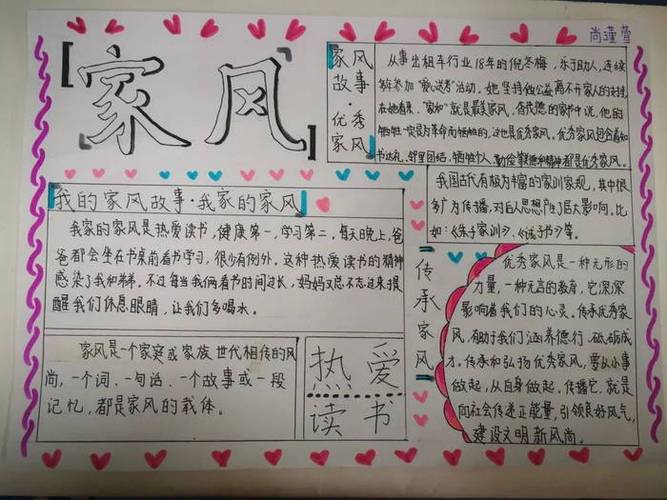 尚瑾萱
家风
家风
故事
·
优秀
家风
从事出租车行业18年的倪冬梅，乐于助人，连续
多年参加“爱心送考”活动。她坚持做公益离不开家人的支持，
在她看来，“家和”就是最美家风。
牺牲一定是为革命而牺牲的，这也是优秀家风。优秀家风包含着知
书达礼、邻里团结、牺牲个人、勤俭
精神都是优秀家风。
我国古代有极为丰富的家训家规，其中很
多广为传播，对后人思想产生了巨大影响。比
如：《朱子家训》、《诫子书》等。
我的家风故事·我家的家风
我家的家风是热爱读书，健康第一，学习第二，每天晚上，爸
爸都会坐在书桌前看书学习，很少有例外。这种热爱读书的精神
感染了我和
。不过每当我们看书时间过长，妈妈又总不忘过来提
醒我们休息眼睛，让我们多喝水。
家风是一个家庭或家族世代相传的风
尚，一个词、一句话、一个故事或一段
记忆，都是家风的载体。
热爱
读书
传
承
家
风
优秀家风是一种无形的
力量，一种无言的教育，它深深
影响着我们的心灵。传承优秀家
风，有助于我们涵养德行、砥砺成
才。传承和弘扬优秀家风，要从小事
做起，从自身做起，传播它，就是
向社会传递正能量，引领良好风气，
建设文明新风尚。